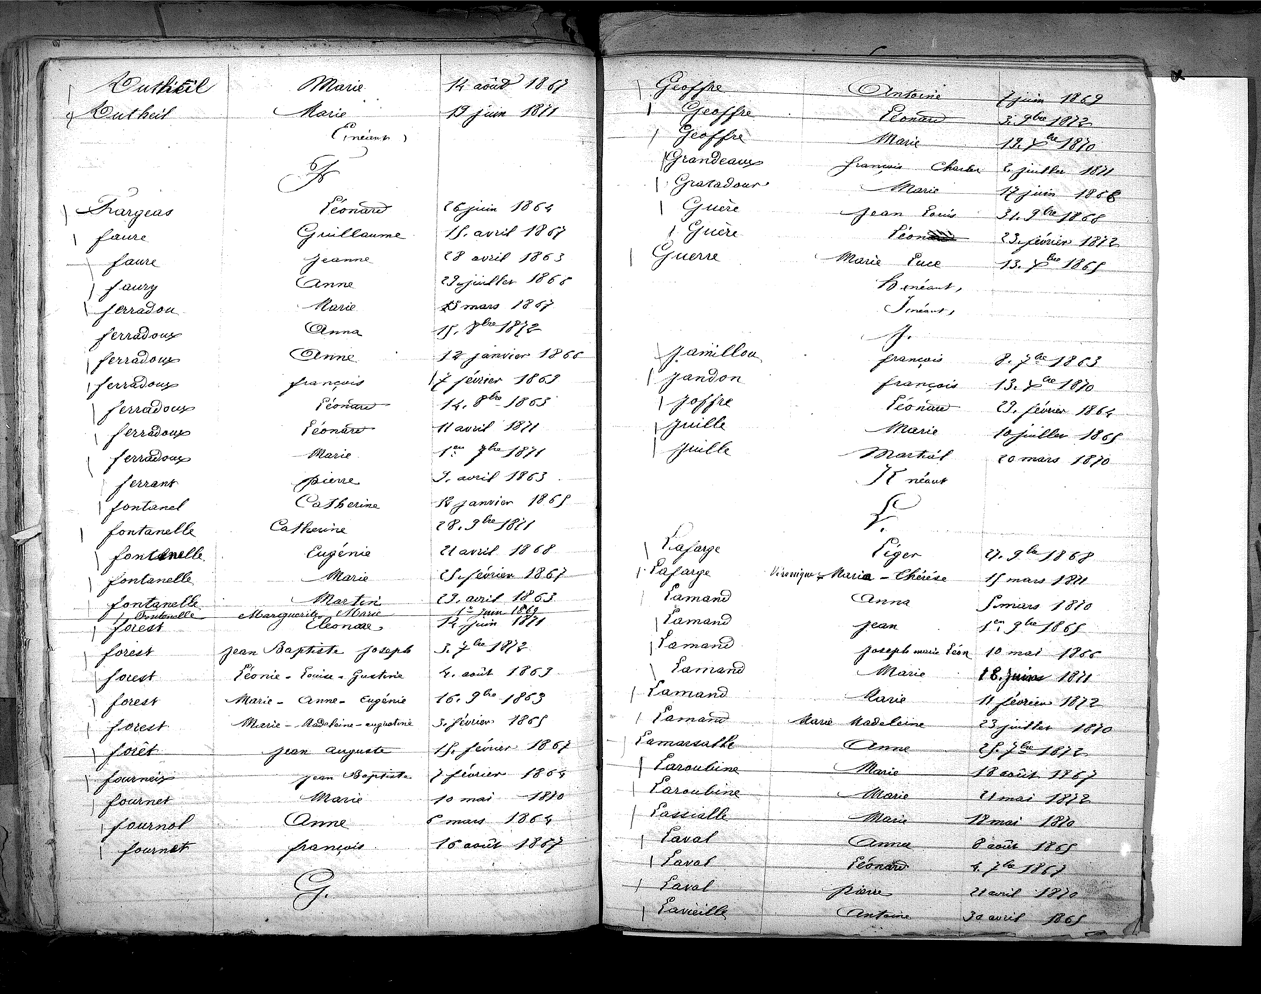 Dutheil Marie 14 août 1867
Dutheil Marie 19 juin 1871
E (néant)
F
Fargeas Léonard 26 juin 1864
faure Guillaume 15. avril 1867
faure jeanne 28 avril 1863
faury Anne 29 juillet 1866
ferradou Marie 25 mars 1867
ferradoux Anna 15. 8bre 1872
ferradoux Anne 12 janvier 1866
ferradoux françois 17 février 1863
ferradoux Léonard 14. 8bre 1865
ferradoux Léonard 11 avril 1871
ferradoux Marie 1er 7bre 1871
ferrant pierre 9. avril 1863
fontanel Catherine 18 janvier 1865
fontanelle Catherine 28. 9bre 1871
fontanelle Eugénie 21 avril 1868
fontanelle Marie 25. février 1867
fontanelle Martin 23. avril 1863
Fontenelle Marguerite Marie 1er juin 1869
forest Léonae 14 juin 1871
forest jean Baptiste joseph 3. 7bre 1872
forest Léonie - Louise - Gustine 4. août 1863
forest Marie - Anne - Eugénie 16. 9bre 1863
forest Marie - Madeleine - eugénie 3. février 1865
forêt jean auguste 15. février 1867
fourneix jean Baptiste 7 février 1864
fournet Marie 10 mai 1870
fournol Anne 6 mars 1864
fournet françois 16 août 1867
G.
Geoffre Antoine 7 juin 1869
Geoffre Léonard 3. 9bre 1872
Geoffre Marie 19. Xbre 1870
Grandeaux françois Charles 2 juillet 1871
Gratadour Marie 17 juin 1866
Guère jean Louis 31. 9bre 1868
Guère Léon 23. février 1872
Guerre Marie Luce 13. Xbre 1865
H néant,
I néant,
J.
jamillou françois 8. 7bre 1863
jandon françois 13. Xbre 1870
joffre Léonard 29. février 1864
juille Marie 10 juillet 1865
juille Martial 20 mars 1870
K néant
L.
Lafarge Léger 27. 9bre 1868
Lafarge Véronique Maria - Thérèse 15 mars 1871
Lamand Anna 5 mars 1870
Lamand jean 1er 9bre 1865
Lamand joseph marie Léon 10 mai 1866
Lamand Marie 18. juin 1871
Lamand Marie 11 février 1872
Lamand Marie Madeleine 23 juillet 1870
Lamarsalle Anne 25. 7bre 1872
Laroubine Marie 18 août 1867
Laroubine Marie 21 mai 1872
Lassialle Marie 12 mai 1870
Laval Anna 8 août 1865
Laval Léonard 4. 7bre 1867
Laval pierre 21 avril 1870
Lavieille Antoine 30 avril 1865